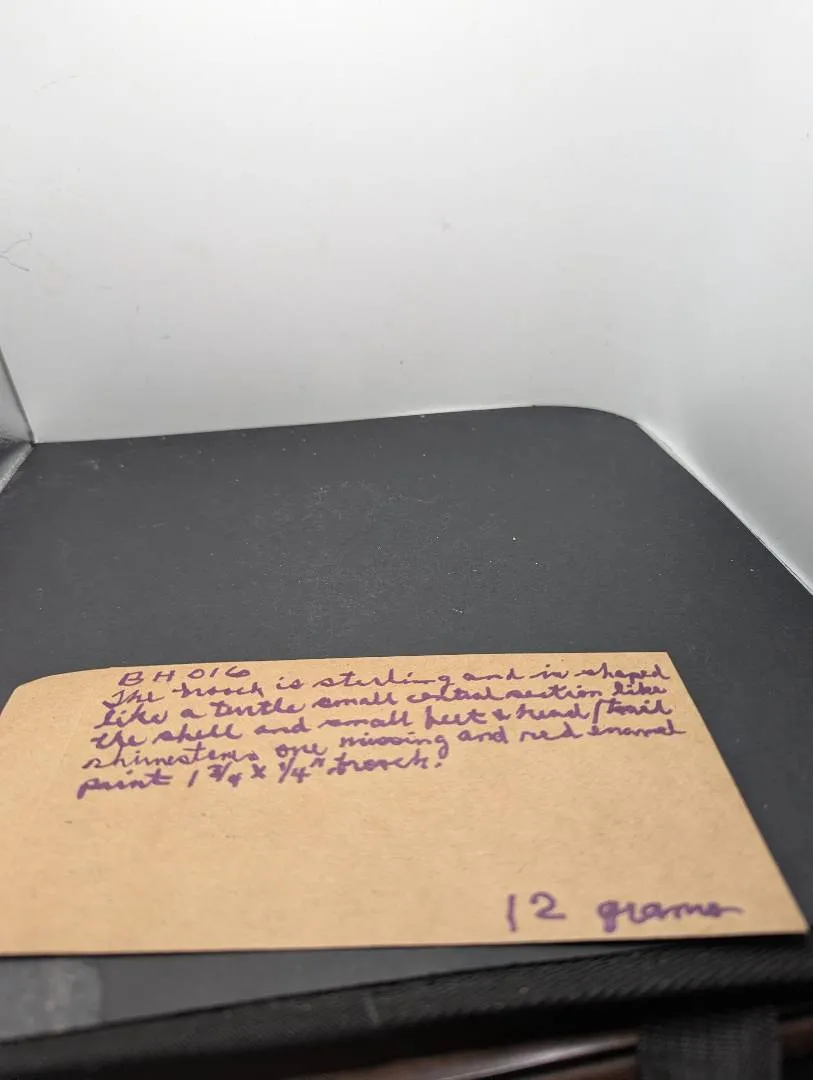 BH 016
The brooch is sterling and is shaped
like a turtle small central section like
the shell and small feet & head/tail
rhinestones one missing and red enamel
paint 1 3/4 x 1/4" brooch.
12 grams